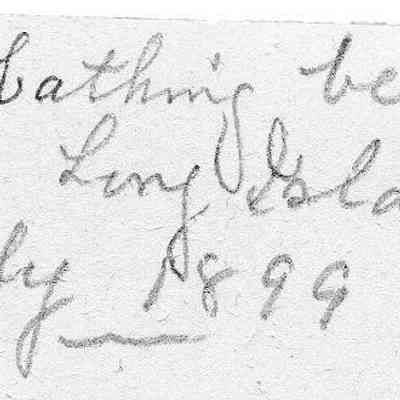 bathing be
Long Isla
ly 1899